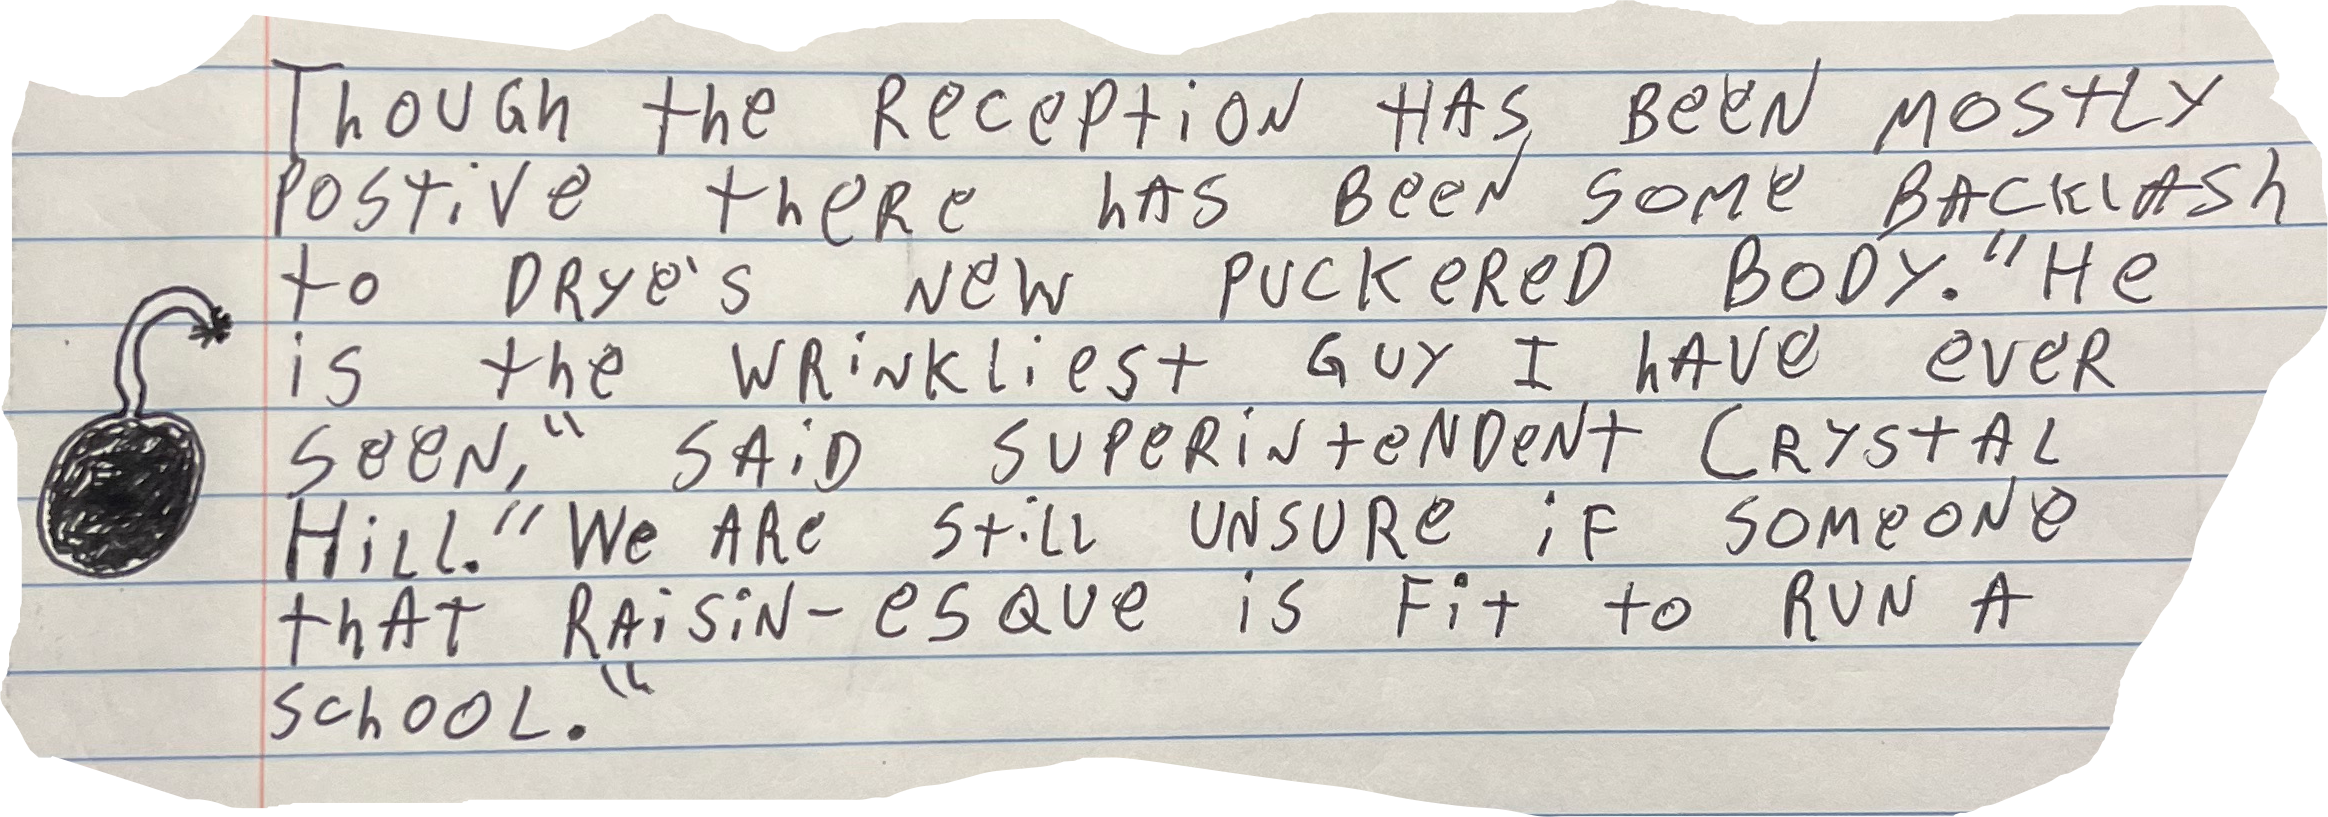 Though the Reception HAS BeeN MostLy
Postive theRe hAS BeeN SoMe BACklASh
to DRye's New PUCKeReD BoDy. "He
is the WRiNkliest Guy I hAVe eveR
SeeN," SAiD SUPeRiNteNDeNt CRystAL
HiLL. "We ARe StiLL UNSURe iF SoMeoNe
thAT RAiSiN-esQUe is Fit to RUN A
SchooL."